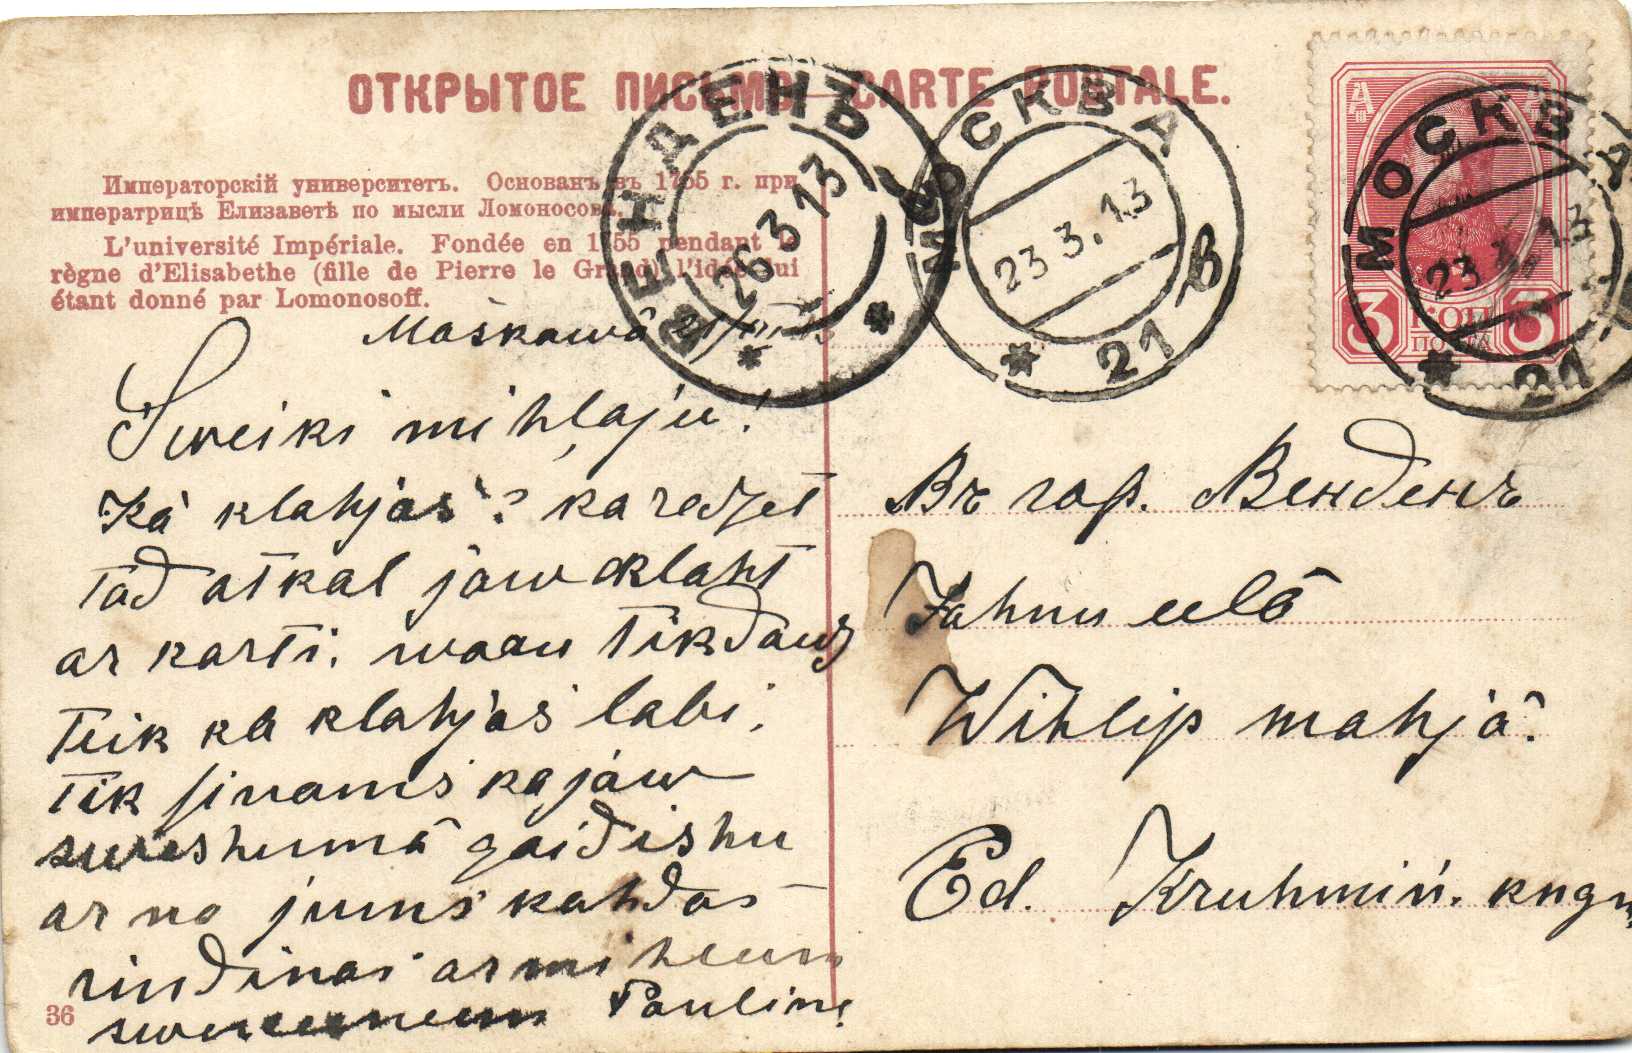 ОТКРЫТОЕ ПИСЬМО — CARTE POSTALE.
Императорскій университетъ. Основанъ въ 1755 г. при
императрицѣ Елизаветѣ по мысли Ломоносова.
L'université Impériale. Fondée en 1755 pendant le
règne d'Elisabethe (fille de Pierre le Grand) l'idée lui
étant donné par Lomonosoff.
ВЕНДЕНЪ
26 3 13
МОСКВА
23 3. 13
21
МОСКВА
23 3 13
21
3 КОП 3
ПОЧТА
Maskawâ
Sweiki mihļaju!
Kâ klahjas? ka redzet
tad atkal jaw klaht
ar karti. waau tikdauz
teik ka klahjas labi,
tik sinams ka jaw
sweshumâ gaidishu
ar no jums kahdas
rindinas ar mihleem
sweezeeneem Pauline
Въ гор. Венденъ
Jahnu eelâ
Wihlip mahjâ.
Ed. Kruhmiń. kngu.
36